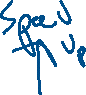 Speed
Up